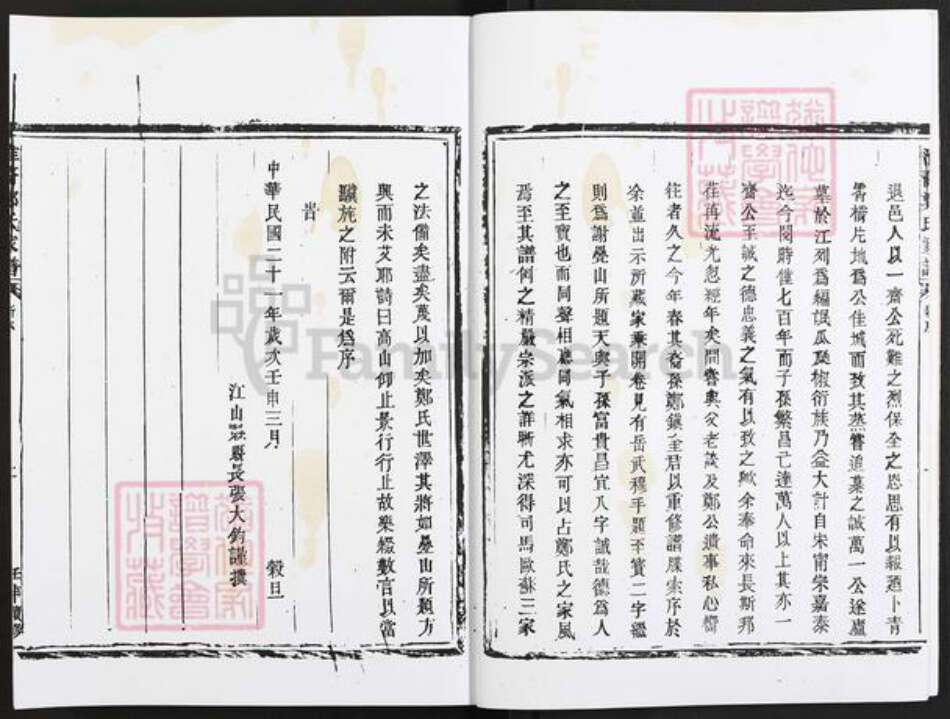 退邑人以一齋公死難之烈保全之恩思有以報廼卜青
霄橋片地為公佳城而致其蒸嘗追慕之誠萬一公遂廬
墓於江列為編氓瓜瓞椒衍族乃益大計自宋甯宗嘉泰
迄今閱時僅七百年而子孫繁昌已達萬人以上其亦一
齋公至誠之德忠義之氣有以致之歟余奉命來長斯邦
荏苒流光忽經年矣間嘗與父老談及鄭公遺事私心嚮
往者久之今年春其裔孫鄭鎮全君以重修譜牒索序於
余並出示所藏家乘開卷見有岳武穆手題至寶二字繼
則為謝疊山所題天與子孫富貴昌宜八字誠哉德為人
之至寶也而同聲相應同氣相求亦可以占鄭氏之家風
焉至其譜例之精嚴宗派之詳晰尤深得司馬歐蘇三家
之法備矣盡矣蔑以加矣鄭氏世澤其將如疊山所題方
興而未艾耶詩曰高山仰止景行行止故樂綴數言以當
驥旄之附云爾是為序
旹
中華民國二十一年歲次壬申三月 穀旦
江山縣縣長張大鈞謹撰
FamilySearch